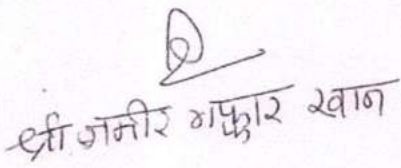 श्री जमीर गफ्फार खान